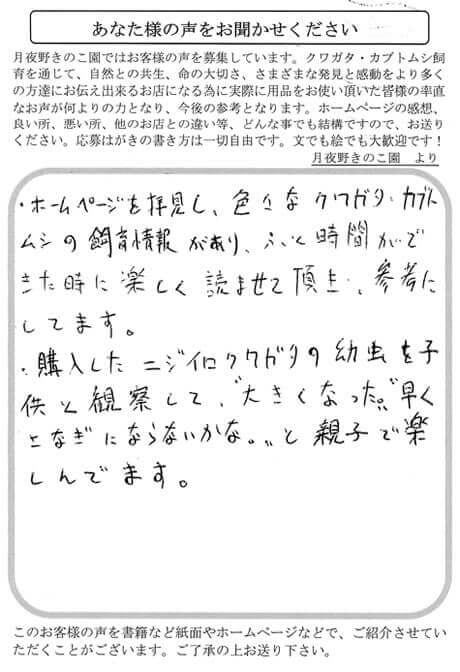 あなた様の声をお聞かせください
月夜野きのこ園ではお客様の声を募集しています。クワガタ・カブトムシ飼
育を通じて、自然との共生、命の大切さ、さまざまな発見と感動をより多く
の方達にお伝え出来るお店になる為に実際に用品をお使い頂いた皆様の率直
なお声が何よりの力となり、今後の参考となります。ホームページの感想、
良い所、悪い所、他のお店との違い等、どんな事でも結構ですので、お送り
ください。応募はがきの書き方は一切自由です。文でも絵でも大歓迎です！
月夜野きのこ園 より
・ホームページを拝見し、色々なクワガタ・カブト
ムシの飼育情報があり、ふと時間がで
きた時に楽しく読ませて頂き、参考に
してます。
・購入したニジイロクワガタの幼虫を子
供と観察して、"大きくなった。""早く
さなぎにならないかな。"と親子で楽
しんでます。
このお客様の声を書籍など紙面やホームページなどで、ご紹介させてい
ただくことがございます。ご了承の上お送り下さい。